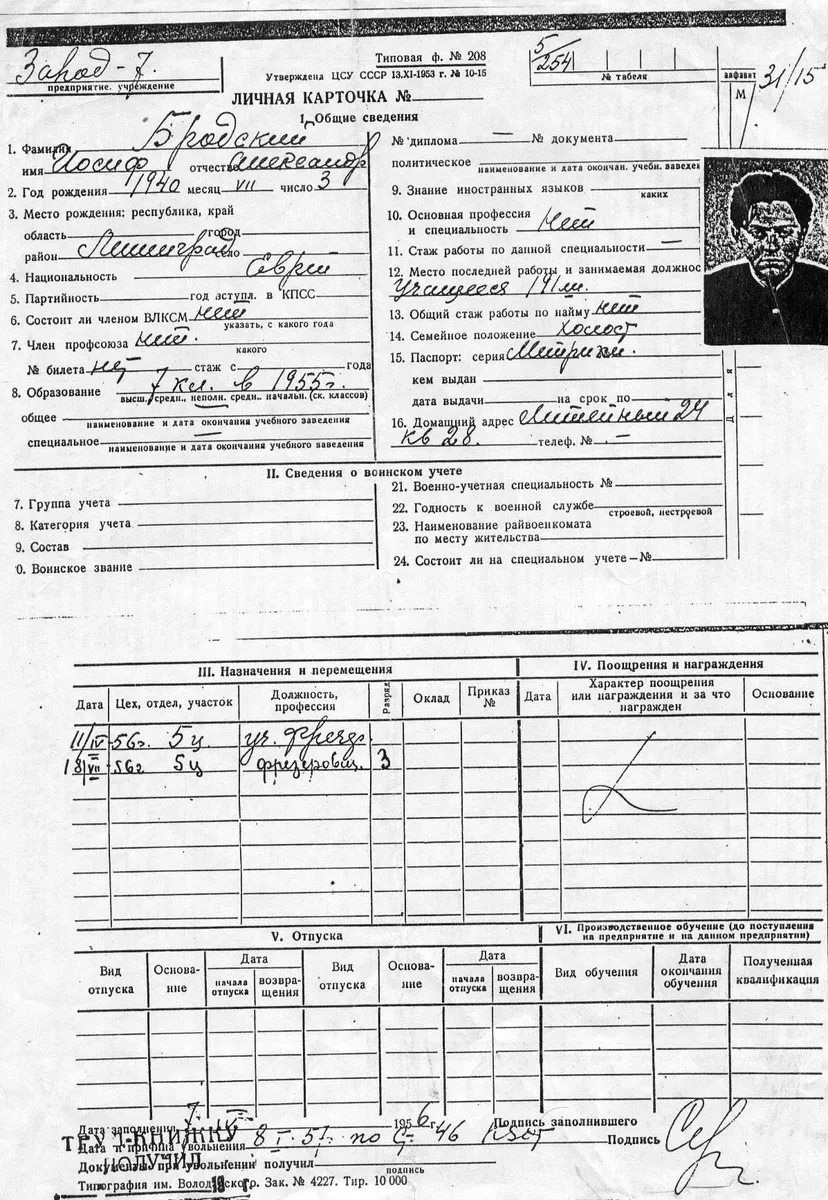 Завод-7.
предприятие, учреждение
Типовая ф. № 208
Утверждена ЦСУ СССР 13.XI-1953 г. № 10-15
5/254
№ табеля
алфавит
М
31/15
ЛИЧНАЯ КАРТОЧКА №
I. Общие сведения
1. Фамилия Бродский
имя Иосиф отчество Александр
2. Год рождения 1940 месяц VII число 3
3. Место рождения: республика, край
область город
район Ленинград село
4. Национальность Еврей
5. Партийность год вступл. в КПСС
6. Состоит ли членом ВЛКСМ нет
указать, с какого года
7. Член профсоюза нет.
какого
№ билета нет стаж с года
8. Образование 7 кл. в 1955г.
высш., средн., неполн. средн., начальн. (ск. классов)
общее
наименование и дата окончания учебного заведения
специальное
наименование и дата окончания учебного заведения
№ диплома — № документа
политическое
наименование и дата окончан. учебн. заведе
9. Знание иностранных языков
каких
10. Основная профессия
и специальность нет
11. Стаж работы по данной специальности —
12. Место последней работы и занимаемая должнос
Учащееся 191 шк.
13. Общий стаж работы по найму нет
14. Семейное положение холост
15. Паспорт: серия Метрики.
кем выдан
дата выдачи на срок по
16. Домашний адрес Литейный 24
кв 28. телеф. № —
Для
II. Сведения о воинском учете
7. Группа учета
8. Категория учета
9. Состав
0. Воинское звание
21. Военно-учетная специальность №
22. Годность к военной службе
строевой, нестроевой
23. Наименование райвоенкомата
по месту жительства
24. Состоит ли на специальном учете - №
III. Назначения и перемещения
Дата Цех, отдел, участок Должность, профессия Разряд Оклад Приказ №
11/IV 56г. 5ц уч. фрезер.
18/VII 56г 5ц фрезеровщ. 3
IV. Поощрения и награждения
Дата Характер поощрения или награждения и за что награжден Основание
V. Отпуска
Вид отпуска Основание Дата начала отпуска возвращения Вид отпуска Основание Дата начала отпуска возвращения
VI. Производственное обучение (до поступления
на предприятие и на данном предприятии)
Вид обучения Дата окончания обучения Полученная квалификация
Дата заполнения 7 IV 1956 г. Подпись заполнившего
Дата и причина увольнения 8 I. 57. по 46 КЗОТ Подпись
Документы при увольнении получил
подпись
ТРУД-КНИЖКУ
ПОЛУЧИЛ
19 г.
Типография им. Володарского. Зак. № 4227. Тир. 10 000